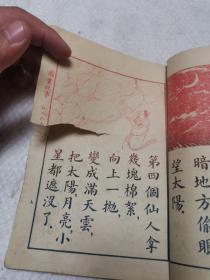 第四個仙人拿
幾塊棉絮，
向上一拋，
變成滿天雲，
把太陽月亮小
星都遮沒了。
暗地方偷眼
望太陽，